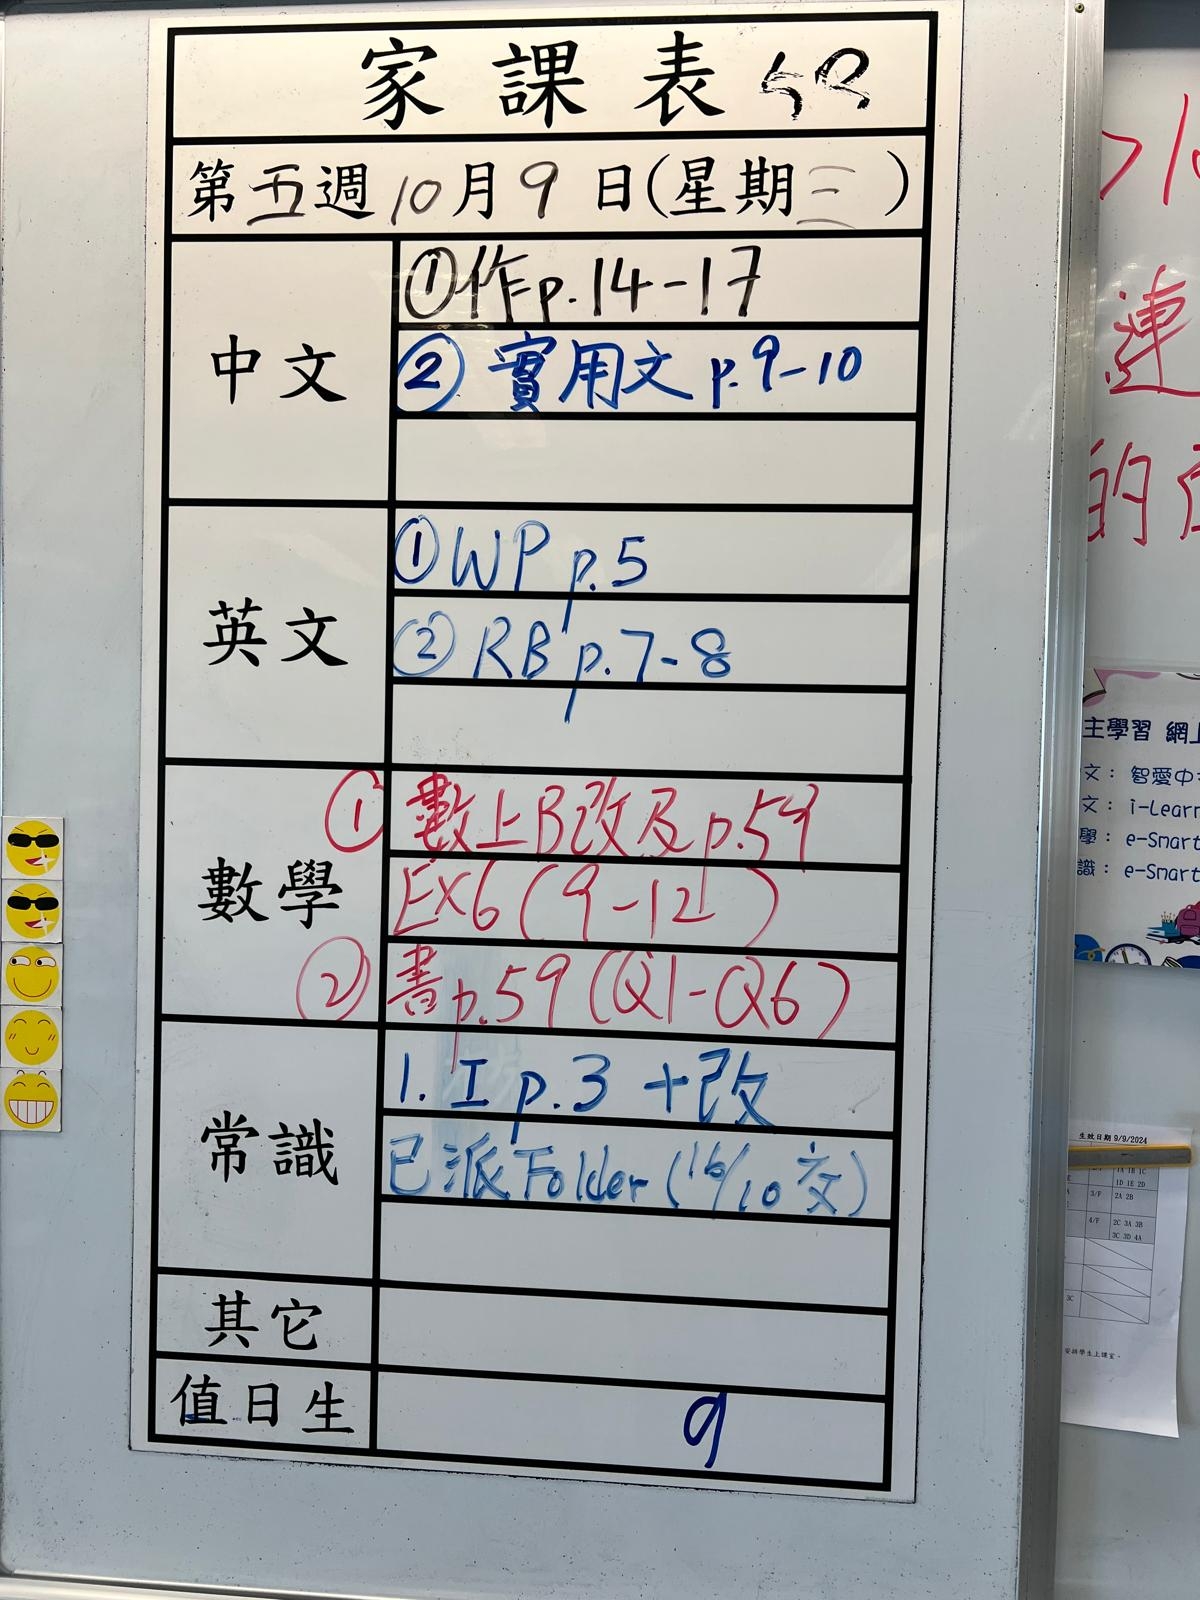 家課表 5B
第五週10月9日(星期三)
中文
①作p.14-17
②實用文p.9-10
英文
①WP p.5
②RB p.7-8
數學
①數上B改及p.59
EX6(9-12)
②書p.59(Q1-Q6)
常識
1. I p.3 +改
已派Folder(16/10交)
其它
值日生
9
連
的
主學習 網上
文： 智愛中
文： i-Learn
學： e-Smart
識： e-Smart
生效日期 9/9/2024
1A 1B 1C
1D 1E 2D
3/F 2A 2B
4/F 2C 3A 3B
3C 3D 4A
3C
安排學生上課室。